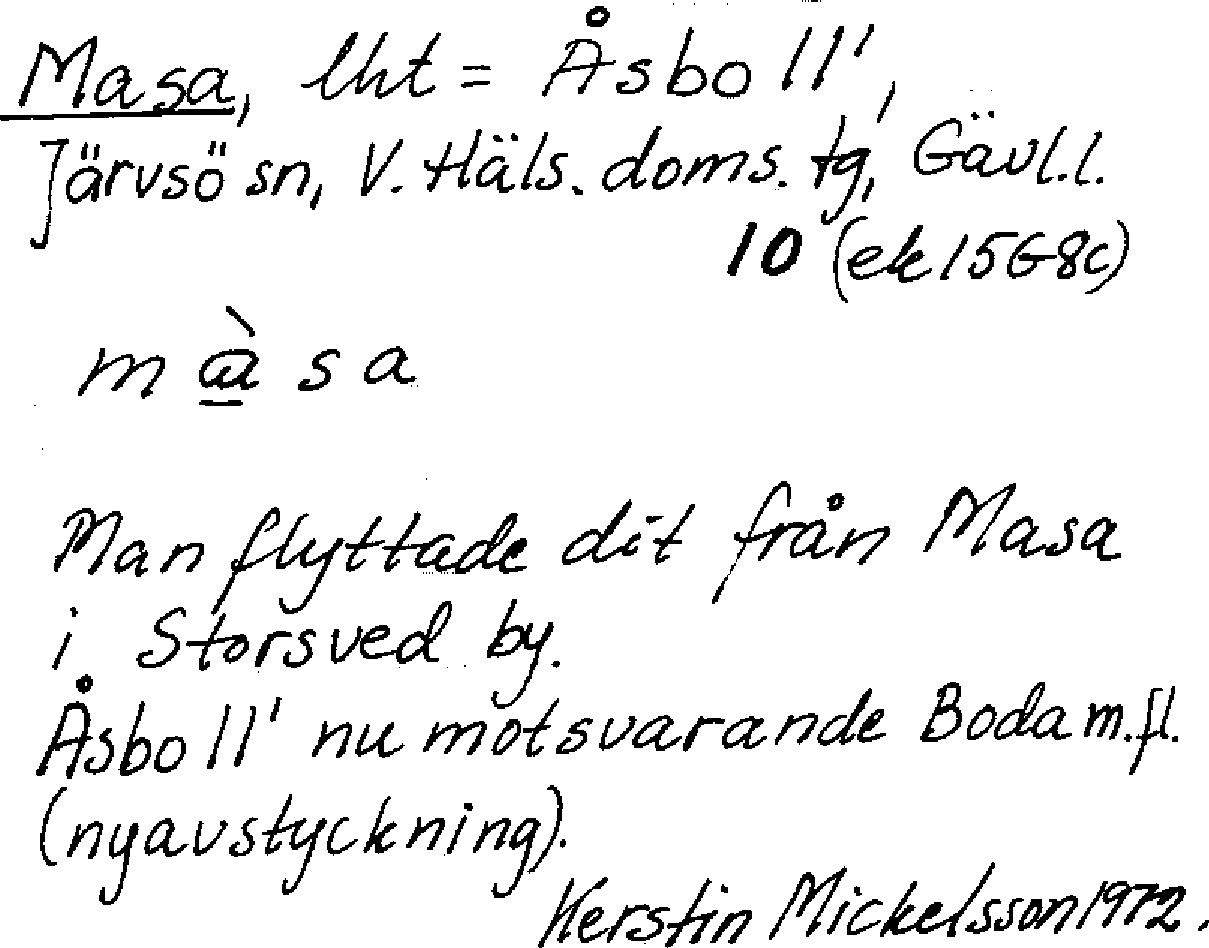 Masa, lht = Åsbo 11',
Järvsö sn, V. Häls. doms. tg, Gävl.l.
10 (ek 15G8c)
màsa
Man flyttade dit från Masa
i Storsved by.
Åsbo 11' nu motsvarande Boda m.fl.
(nyavstyckning).
Kerstin Mickelsson 1972.